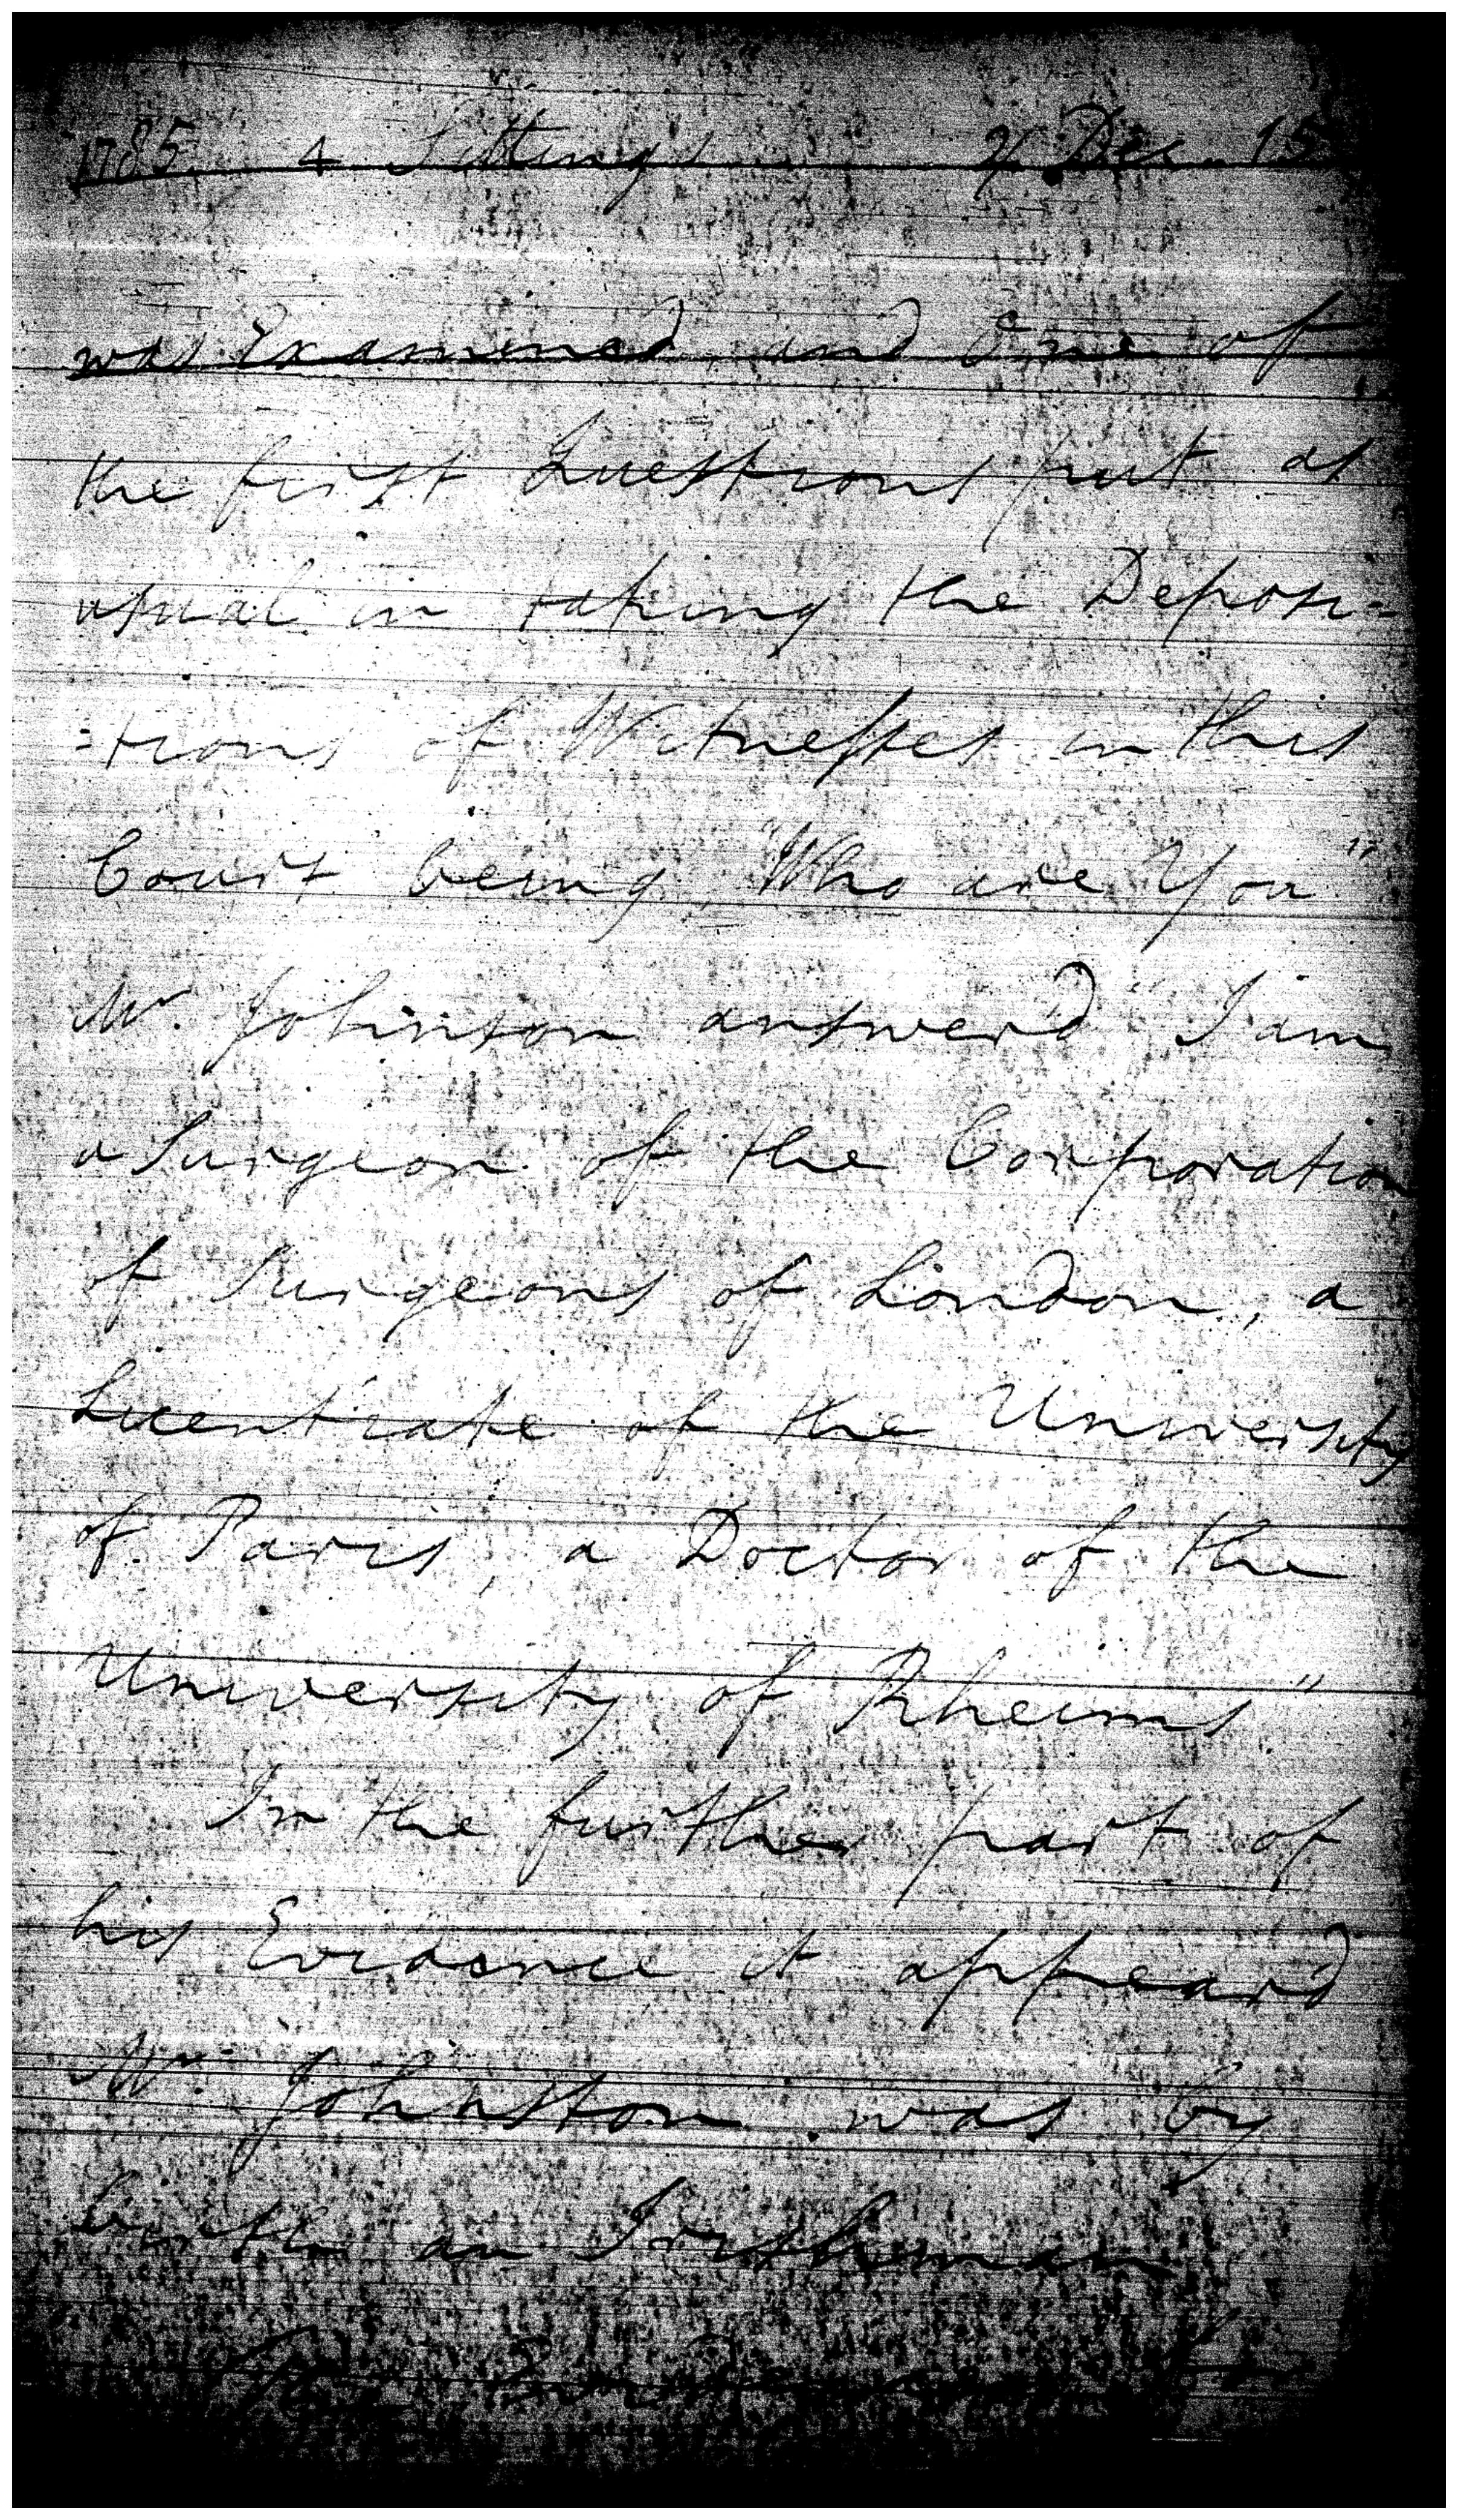 1785. 4 Sittings Dec. 15
was Examined and One of
the first Questions put as
usual in taking the Deposi=
=tions of Witnesses in this
Court being "Who are You"
Mr. Johnston answerd "I am
a Surgeon of the Corporation
of Surgeons of London, a
Licentiate of the University
of Paris, a Doctor of the
University of Rheims"
In the further part of
his Evidence it appeard
Mr. Johnston was by
birth an Irishman
The